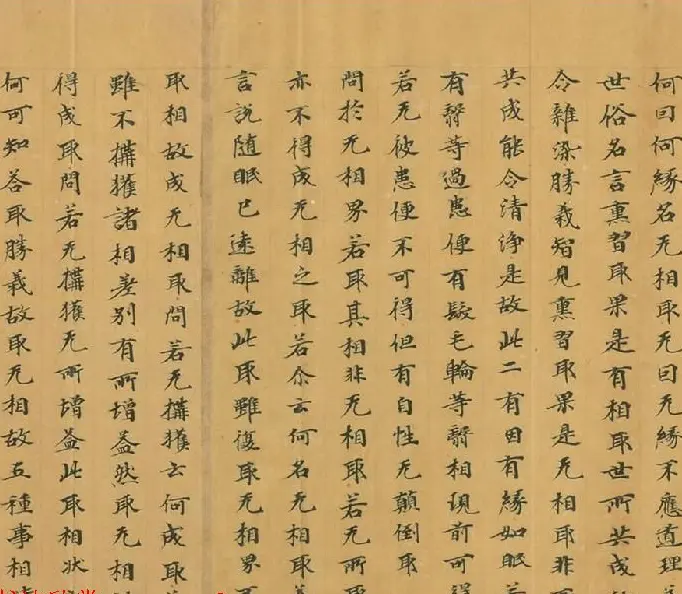 何因何緣名无相取无因无緣不應道理
世俗名言熏習取果是有相取世所共成
令雜染勝義智見熏習取果是无相取非
共成能令清淨是故此二有因有緣如眼若
有翳等過患便有髮毛輪等翳相現前可得
若无彼患便不可得但有自性无顛倒取
問於无相界若取其相非无相取若无所取
亦不得成无相之取若尒云何名无相取
言說随眠已遠離故此取雖復取无相界不
取相故成无相取問若无搆獲云何成取
雖不搆獲諸相差別有所增益然取无相
得成取問若无搆獲无所增益此取相狀
何可知答取勝義故取无相故五種事相